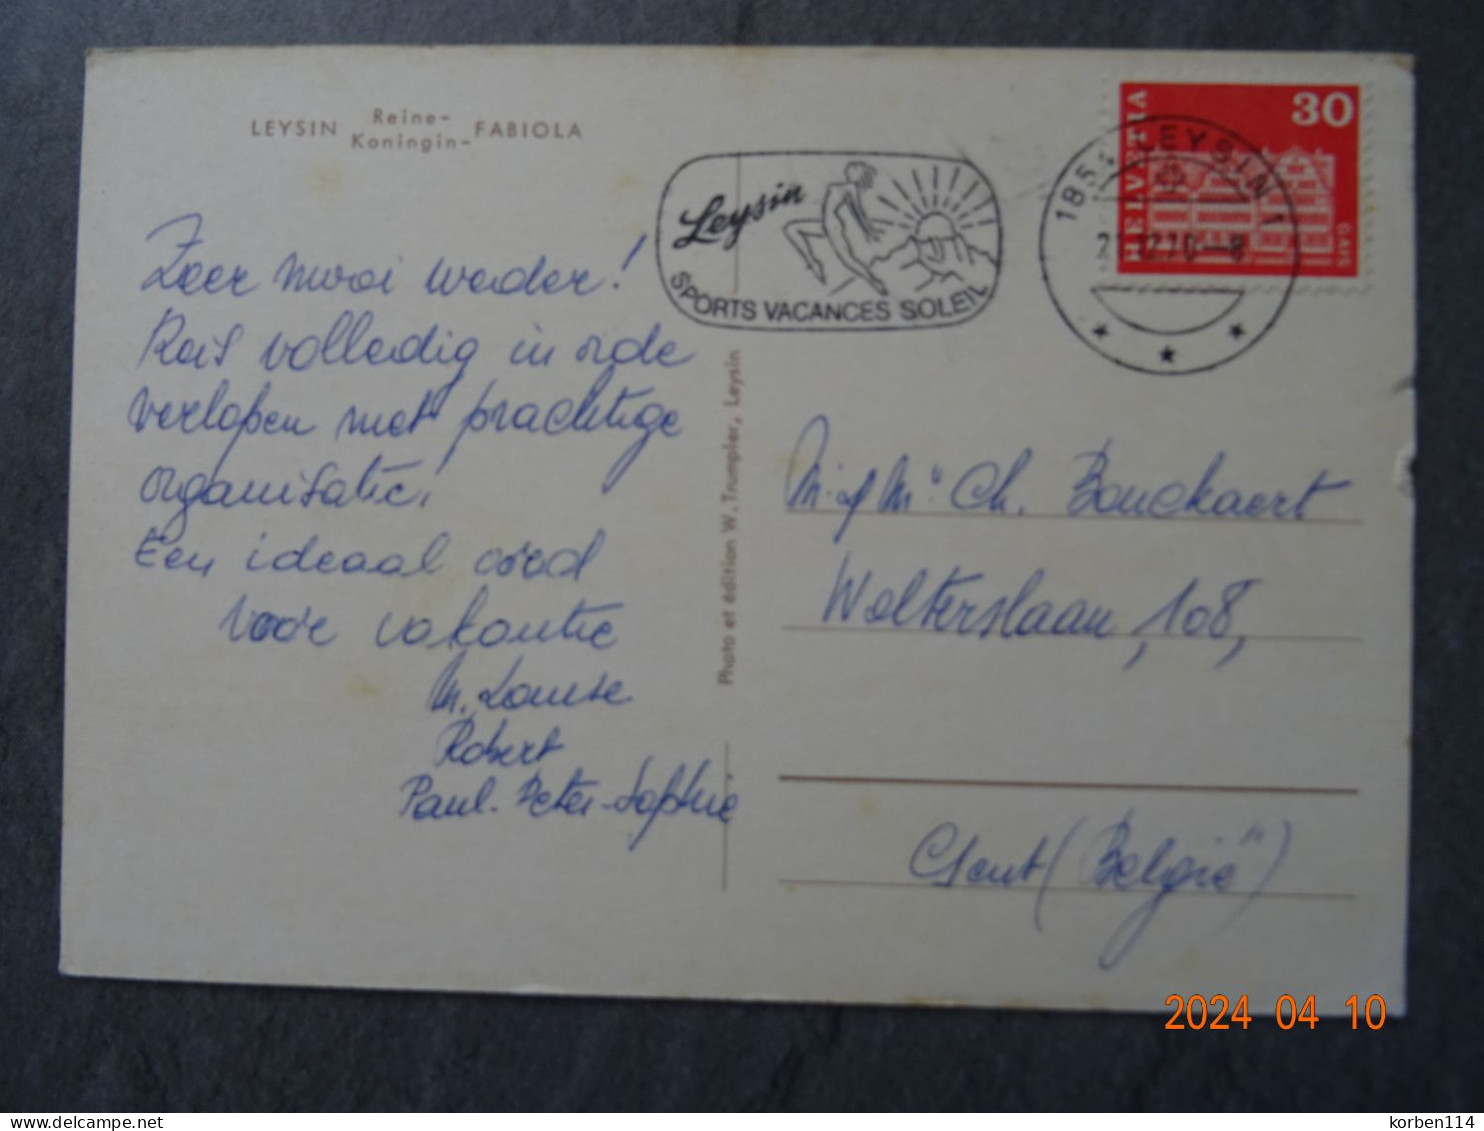 LEYSIN Reine- Koningin- FABIOLA
Zeer mooi weder!
Reis volledig in orde
verlopen met prachtige
organisatie!
Een ideaal oord
voor vakantie
M. Louise
Robert
Paul-Peter-Sophie
Photo et édition W. Trumpler, Leysin
Leysin
SPORTS VACANCES SOLEIL
1854 LEYSIN 1
HELVETIA
30
GAIS
Ch. Bouckaert
Wolterslaan, 108,
Gent (België)
2024 04 10
korben114